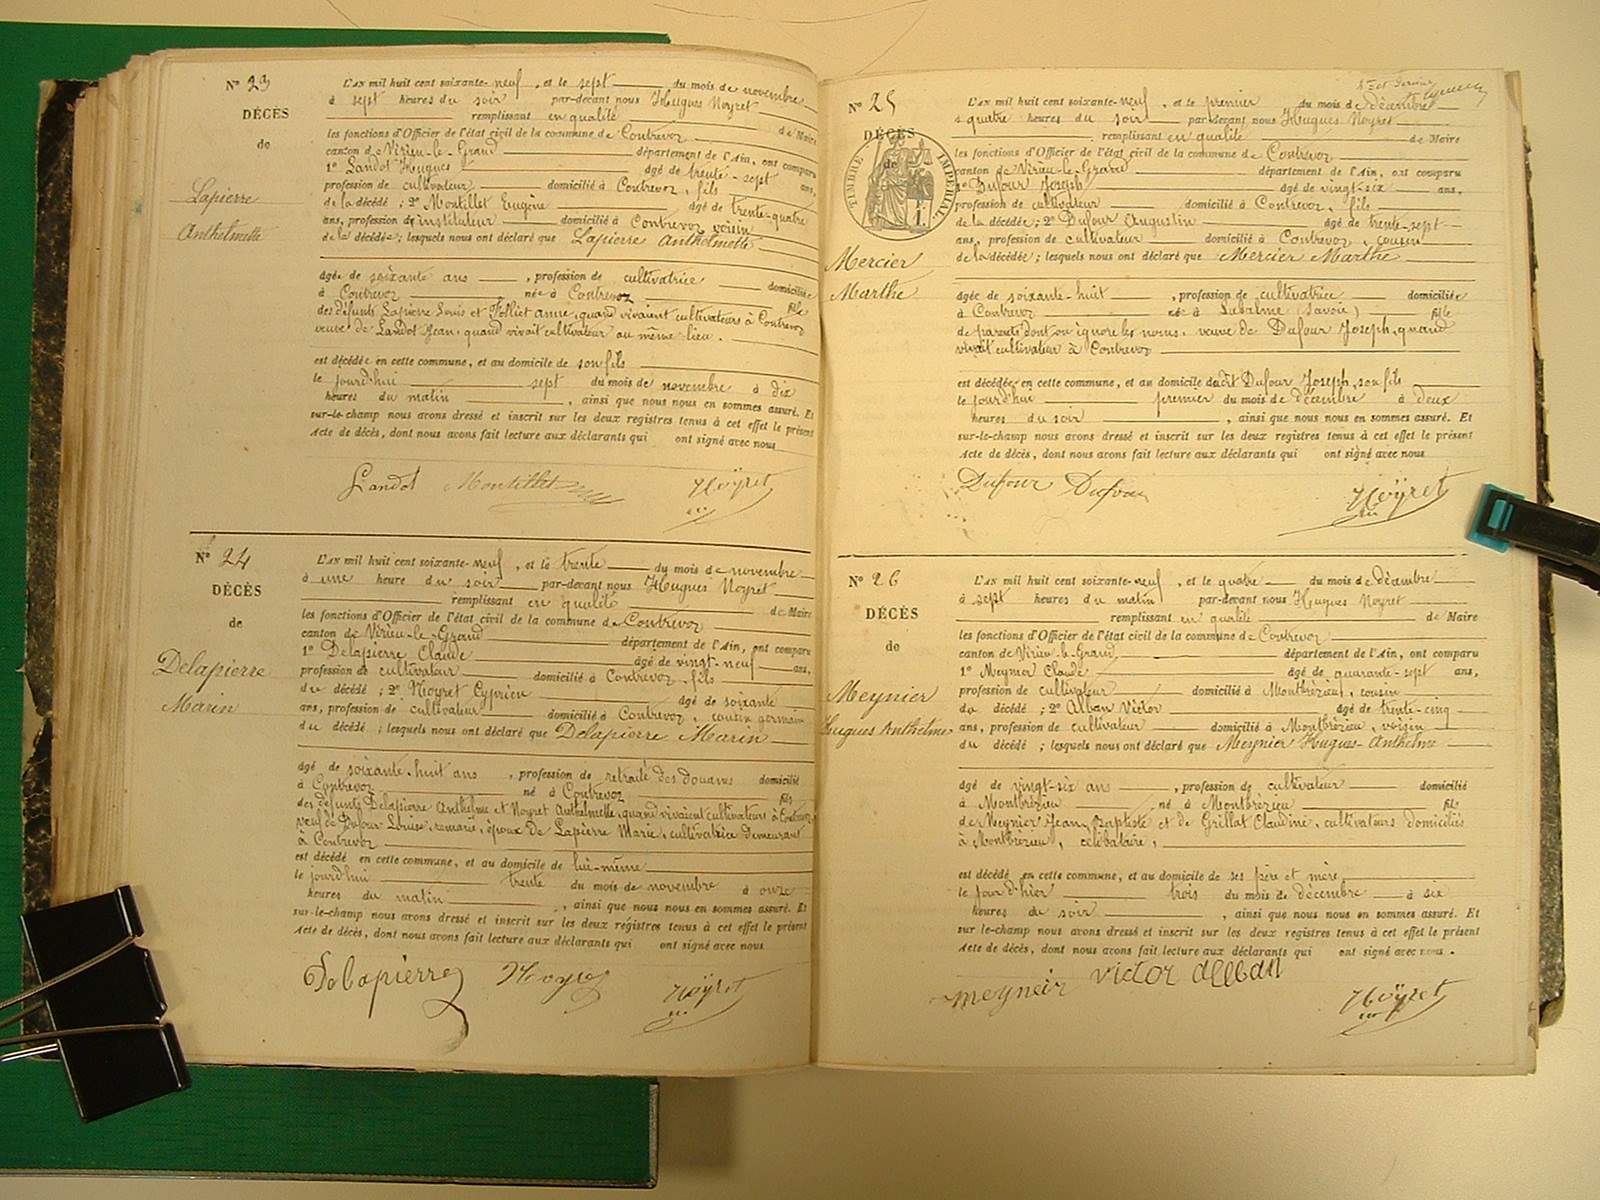 N° 23
DÉCÈS
de
Lapierre
Anthelmette
L'AN mil huit cent soixante-neuf, et le sept du mois de novembre
à sept heures du soir par-devant nous Hugues Noyret
remplissant en qualité de Maire
les fonctions d'Officier de l'état civil de la commune de Contrevoz
canton de Virieu-le-Grand département de l'Ain, ont comparu
1° Landot Hugues âgé de trente-sept ans,
profession de cultivateur domicilié à Contrevoz, fils
de la décédée ; 2° Montillet Eugène âgé de trente-quatre
ans, profession d'instituteur domicilié à Contrevoz voisin
de la décédée ; lesquels nous ont déclaré que Lapierre Anthelmette
âgée de soixante ans, profession de cultivatrice domiciliée
à Contrevoz née à Contrevoz fille
des défunts Lapierre Louis et Folliet Anne, quand vivaient cultivateurs à Contrevoz
veuve de Landot Jean, quand vivait cultivateur au même lieu.
est décédée en cette commune, et au domicile de son fils
le jourd'hui sept du mois de novembre à dix
heures du matin, ainsi que nous nous en sommes assuré. Et
sur-le-champ nous avons dressé et inscrit sur les deux registres tenus à cet effet le présent
Acte de décès, dont nous avons fait lecture aux déclarants qui ont signé avec nous
Landot Montillet Noÿret
N° 24
DÉCÈS
de
Delapierre
Marin
L'AN mil huit cent soixante-neuf, et le trente du mois de novembre
à une heure du soir par-devant nous Hugues Noyret
remplissant en qualité de Maire
les fonctions d'Officier de l'état civil de la commune de Contrevoz
canton de Virieu-le-Grand département de l'Ain, ont comparu
1° Delapierre Claude âgé de vingt-neuf ans,
profession de cultivateur domicilié à Contrevoz, fils
du décédé ; 2° Noyret Cyprien âgé de soixante
ans, profession de cultivateur domicilié à Contrevoz, cousin germain
du décédé ; lesquels nous ont déclaré que Delapierre Marin
âgé de soixante-huit ans, profession de retraité des douanes domicilié
à Contrevoz né à Contrevoz fils
des défunts Delapierre Anthelme et Noyret Anthelmette, quand vivaient cultivateurs à Contrevoz
veuf de Dufour Louise, remarié, époux de Lapierre Marie, cultivatrice demeurant
à Contrevoz
est décédé en cette commune, et au domicile de lui-même
le jourd'hui trente du mois de novembre à onze
heures du matin, ainsi que nous nous en sommes assuré. Et
sur-le-champ nous avons dressé et inscrit sur les deux registres tenus à cet effet le présent
Acte de décès, dont nous avons fait lecture aux déclarants qui ont signé avec nous
Delapierre Noyret Noÿret
N° 25
DÉCÈS
de
TIMBRE IMPÉRIAL
Mercier
Marthe
L'AN mil huit cent soixante-neuf, et le premier du mois de décembre
à quatre heures du soir par-devant nous Hugues Noyret
remplissant en qualité de Maire
les fonctions d'Officier de l'état civil de la commune de Contrevoz
canton de Virieu-le-Grand département de l'Ain, ont comparu
1° Dufour Joseph âgé de vingt-six ans,
profession de cultivateur domicilié à Contrevoz, fils
de la décédée ; 2° Dufour Augustin âgé de trente-sept
ans, profession de cultivateur domicilié à Contrevoz, cousin
de la décédée ; lesquels nous ont déclaré que Mercier Marthe
âgée de soixante-huit, profession de cultivatrice domiciliée
à Contrevoz née à (Savoie) fille
de parents dont on ignore les noms, veuve de Dufour Joseph, quand
vivait cultivateur à Contrevoz
est décédée en cette commune, et au domicile dudit Dufour Joseph, son fils
le jourd'hui premier du mois de décembre à deux
heures du soir, ainsi que nous nous en sommes assuré. Et
sur-le-champ nous avons dressé et inscrit sur les deux registres tenus à cet effet le présent
Acte de décès, dont nous avons fait lecture aux déclarants qui ont signé avec nous
Dufour Dufour Noÿret
N° 26
DÉCÈS
de
Meynier
Hugues Anthelme
L'AN mil huit cent soixante-neuf, et le quatre du mois de décembre
à sept heures du matin par-devant nous Hugues Noyret
remplissant en qualité de Maire
les fonctions d'Officier de l'état civil de la commune de Contrevoz
canton de Virieu-le-Grand département de l'Ain, ont comparu
1° Meynier Claude âgé de quarante-sept ans,
profession de cultivateur domicilié à Montbrézieu, cousin
du décédé ; 2° Alban Victor âgé de trente-cinq
ans, profession de cultivateur domicilié à Montbrézieu, voisin
du décédé ; lesquels nous ont déclaré que Meynier Hugues-Anthelme
âgé de vingt-six ans, profession de cultivateur domicilié
à Montbrézieu né à Montbrézieu fils
de Meynier Jean Baptiste et de Grillat Claudine, cultivateurs domiciliés
à Montbrézieu, célibataire,
est décédé en cette commune, et au domicile de ses père et mère,
le jour d'hier trois du mois de décembre à six
heures du soir, ainsi que nous nous en sommes assuré. Et
sur le-champ nous avons dressé et inscrit sur les deux registres tenus à cet effet le présent
Acte de décès, dont nous avons fait lecture aux déclarants qui ont signé avec nous.
meyneir victor alban Noÿret